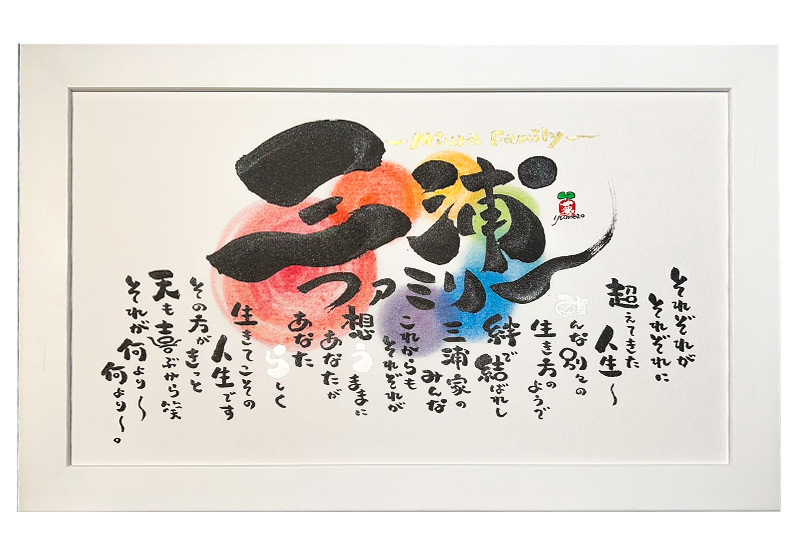 ~Miura Family~
三浦
ファミリー
yumezo
それぞれが
それぞれに
超えてきた
人生〜
みんな別々の
生き方のようで
絆で結ばれし
三浦家の
みんな
これからも
それぞれが
想うままに
あなたが
あなた
らしく
生きてこその
人生です
その方がきっと
天も喜ぶから笑
それが何より〜
何より〜。